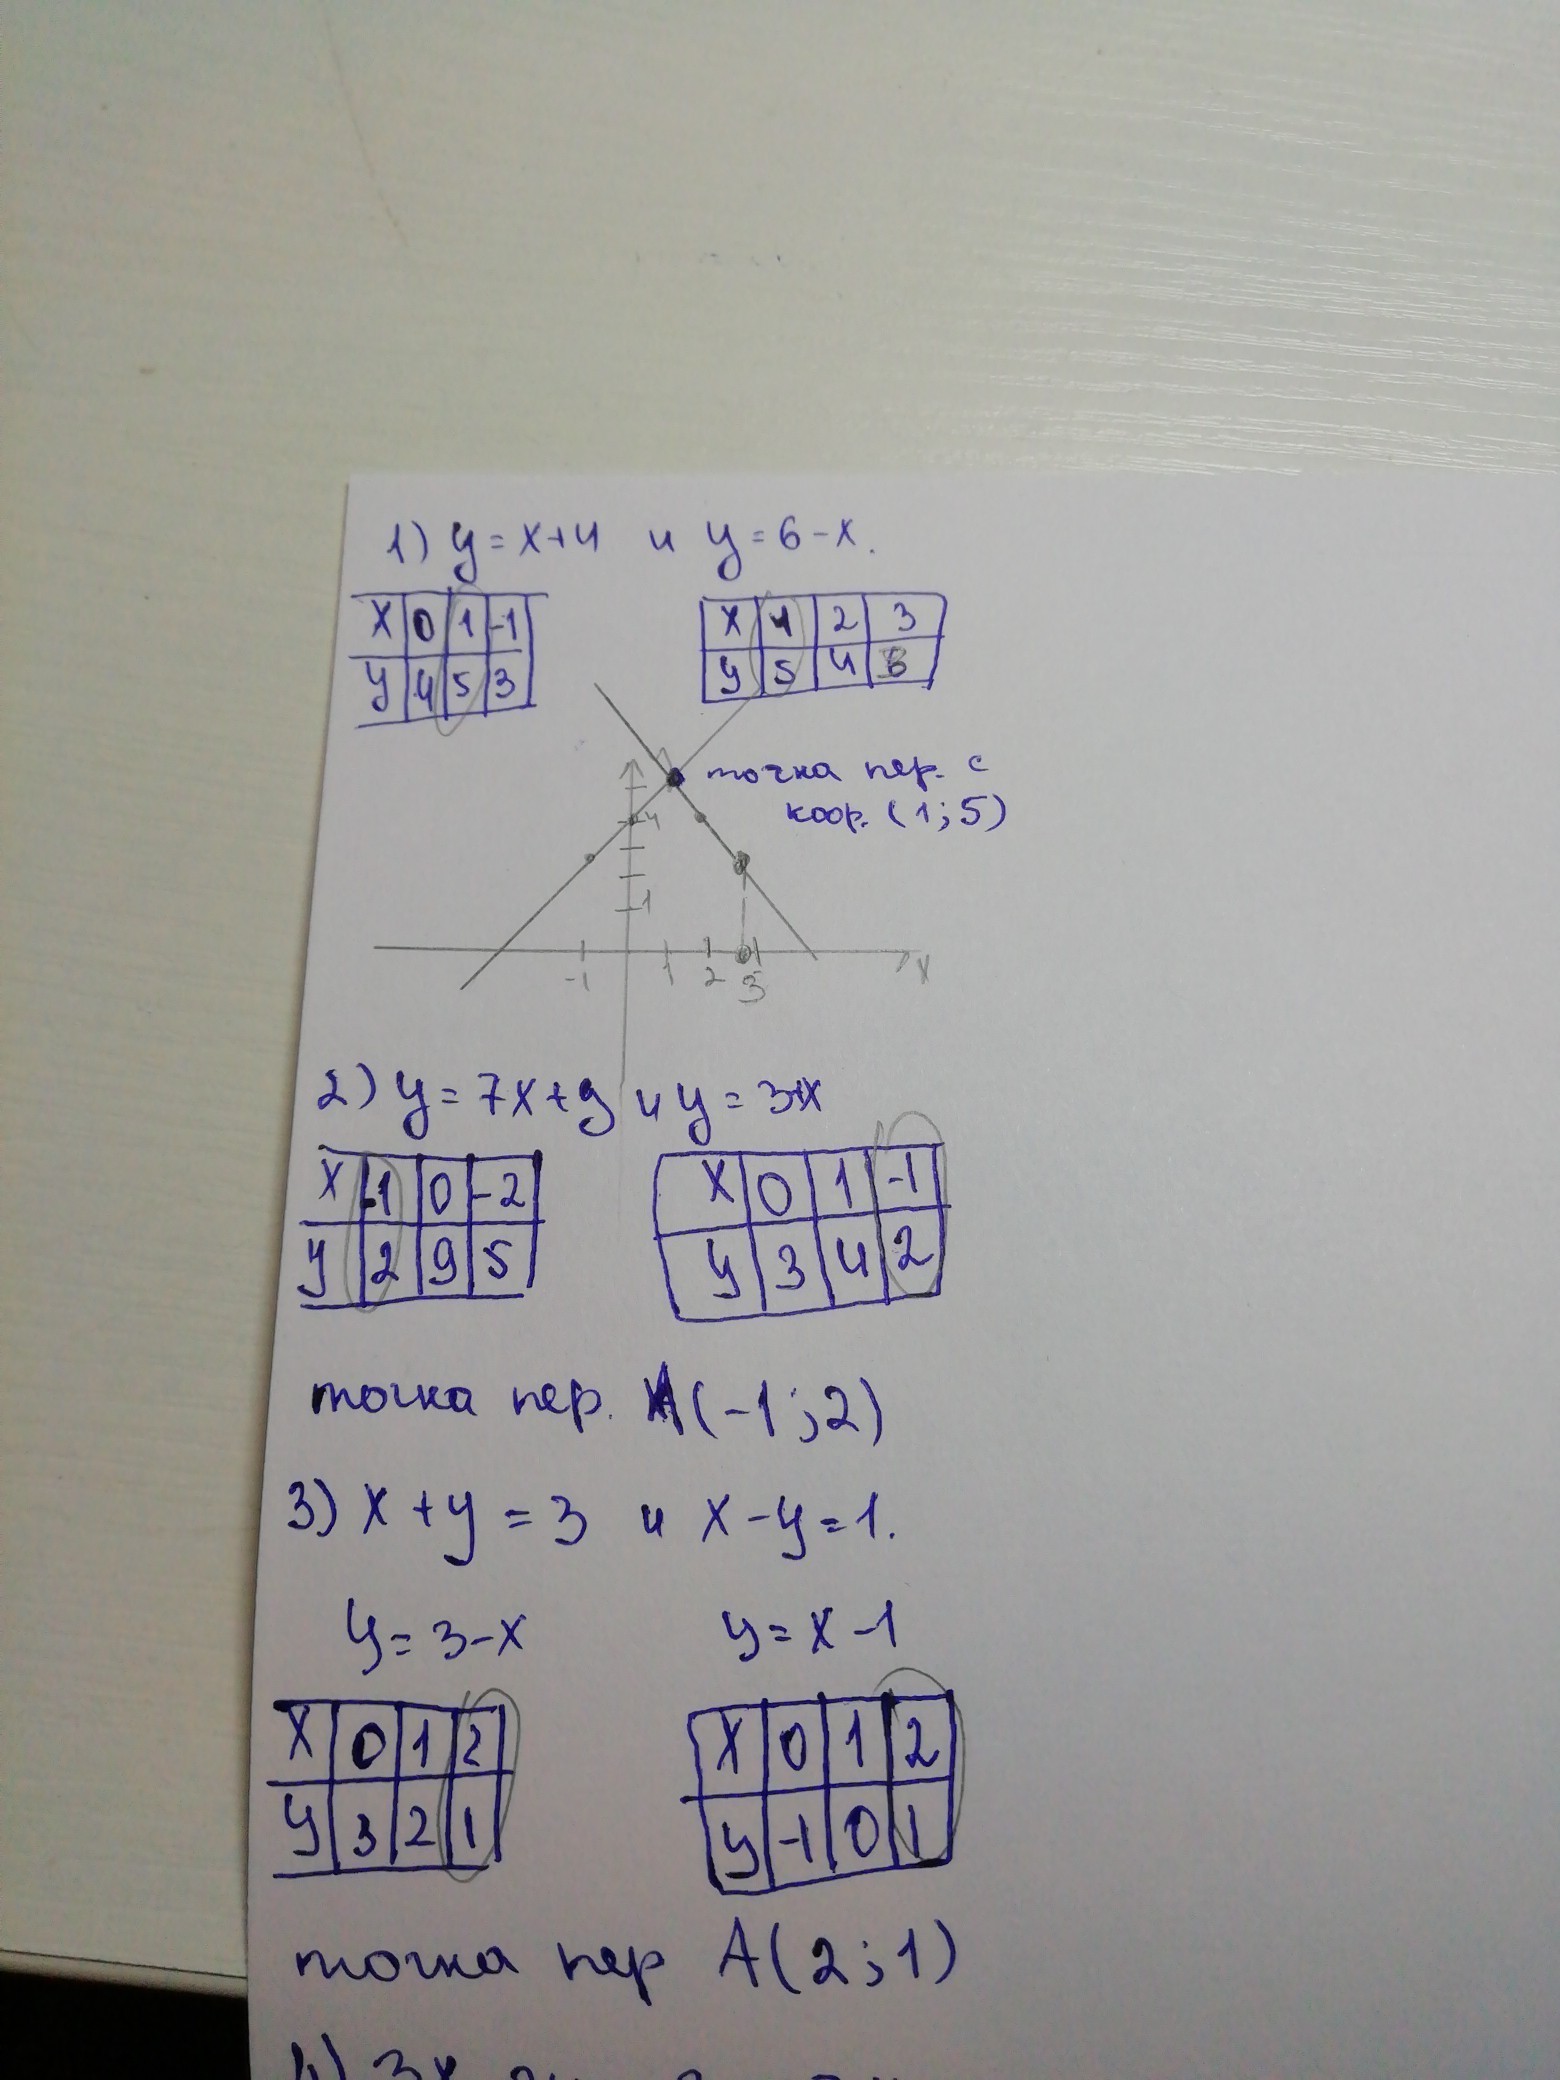 1) y = x+4 и y = 6-x.
x 0 1 -1
y 4 5 3
x 1 2 3
y 5 4 3
точка пер. с
коор. (1; 5)
4
1
-1 1 2 3 x
2) y = 7x+9 и y = 3+x
x -1 0 -2
y 2 9 5
x 0 1 -1
y 3 4 2
точка пер. A(-1; 2)
3) x + y = 3 и x - y = 1.
y = 3-x y = x-1
x 0 1 2
y 3 2 1
x 0 1 2
y -1 0 1
точка пер A(2; 1)
4) 3x